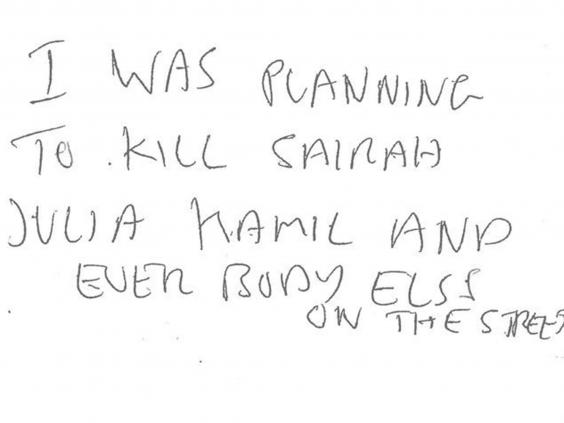 I WAS PLANNING
TO KILL SAIRAH
JULIA KAMIL AND
EVER BODY ELSS
ON THE STREET